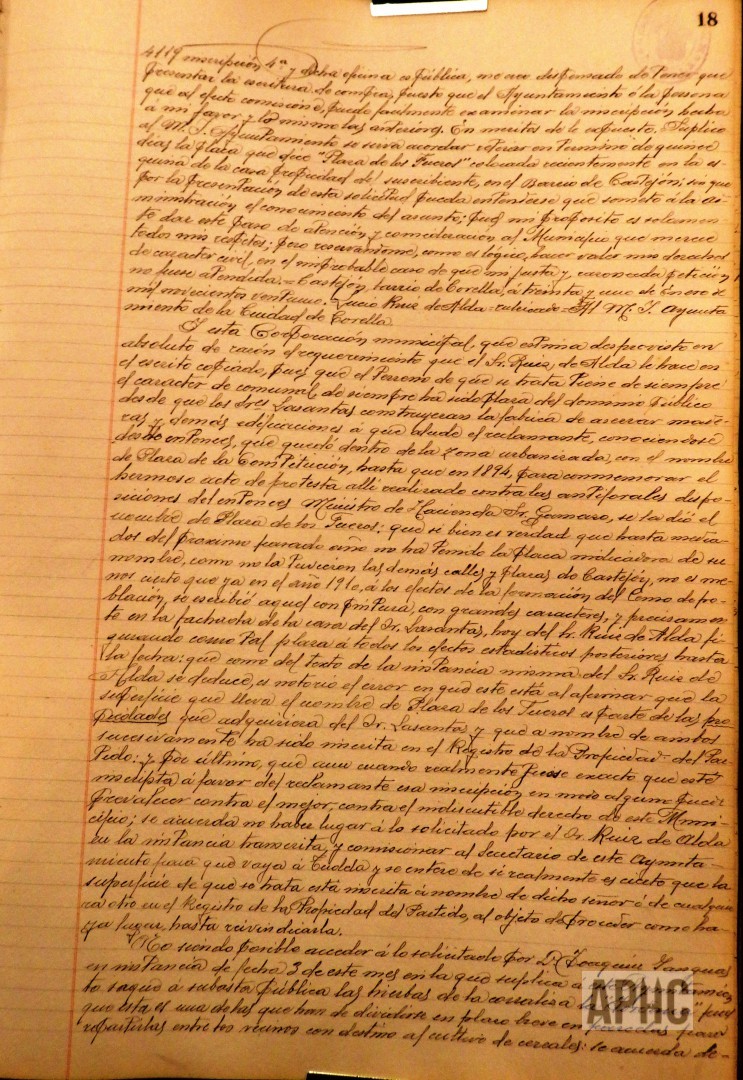 18
4119 inscripción 4ª y dicha oficina es pública, me creo dispensado de tener que
presentar la escritura de compra, puesto que el Ayuntamiento ó la persona
que al efecto comisione, puede facilmente examinar la inscripción hecha
á mi favor y lo mismo las anteriores. En meritos de lo expuesto, Suplico
al M. I. Ayuntamiento se sirva acordar retirar en termino de quince
dias, la placa que dice "Plaza de los Fueros" colocada recientemente en la es-
quina de la casa propiedad del suscribiente, en el Barrio de Castejón; sin que
por la presentación de esta solicitud pueda entenderse que someto á la ad-
ministración el conocimiento del asunto; pues mi proposito es solamen-
te dar este paso de atención y consideración al Municipio que merece
todos mis respetos; pero reservándome, como es lógico, hacer valer mis derechos
de caracter civil, en el improbable caso de que mi justa y razonada petición
no fuese atendida. = Castejón, barrio de Corella, á treinta y uno de Enero de
mil novecientos veintiuno. Lucio Ruiz de Alda = rubricado = Al M. I. Ayunta-
miento de la Ciudad de Corella.
Y esta Corporación municipal, que estima desprovisto en
absoluto de razón el requerimiento que el Sr. Ruiz de Alda le hace en
el escrito copiado, pues que el terreno de que se trata tiene de siempre
el caracter de comunal, de siempre ha sido plaza del dominio público
desde que los Sres Lasantas construyeran la fabrica de aserrar made-
ras y demás edificaciones á que alude el reclamante, conociendose
desde entonces, que quedó dentro de la zona urbanizada, con el nombre
de Plaza de la Constitución, hasta que en 1894, para conmemorar el
hermoso acto de protesta allí realizado contra las antiforales dispo-
siciones del entonces Ministro de Hacienda Sr. Gamazo, se la dió el
nombre de Plaza de los Fueros: que si bien es verdad que hasta media-
dos del proximo pasado año no ha tenido la placa indicadora de su
nombre, como no la tuvieron las demás calles y plazas de Castejón, no es me-
nos cierto que ya en el año 1910, á los efectos de la formación del Censo de po-
blación, se escribió aquel con pintura, con grandes caracteres, y precisamen-
te en la fachada de la casa del Sr. Lasantas, hoy del Sr. Ruiz de Alda fi-
gurando como tal plaza á todos los efectos estadisticos posteriores hasta
la fecha: que como del texto de la instancia misma del Sr. Ruiz de
Alda se deduce, es notorio el error en que este está al afirmar que la
superficie que lleva el nombre de Plaza de los Fueros es parte de las pro-
piedades que adquiriera del Sr. Lasanta, y que á nombre de ambos
sucesivamente ha sido inscrita en el Registro de la Propiedad del Par-
tido: y por último, que aun cuando realmente fuese exacto que esté
inscripta á favor del reclamante esa inscripción en modo alguno puede
prevalecer contra el mejor, contra el indiscutible derecho de este Muni-
cipio; se acuerda no haber lugar á lo solicitado por el Sr. Ruiz de Alda
en la instancia transcrita, y comisionar al Secretario de este Ayunta-
miento para que vaya á Tudela y se entere de si realmente es cierto que la
superficie de que se trata está inscrita á nombre de dicho señor ó de cualquie-
ra otro en el Registro de la Propiedad del Partido, al objeto de proceder como ha-
ya lugar, hasta reivindicarla.
No siendo posible acceder á lo solicitado por D. Joaquin Sanguas
en instancia de fecha 3 de este mes en la que suplica á
to saque á subasta pública las hierbas de la corraliza pues
que esta es una de las que han de dividirse en plazo breve en parcelas para
repartirlas entre los vecinos con destino al cultivo de cereales: se acuerda de-
APHC